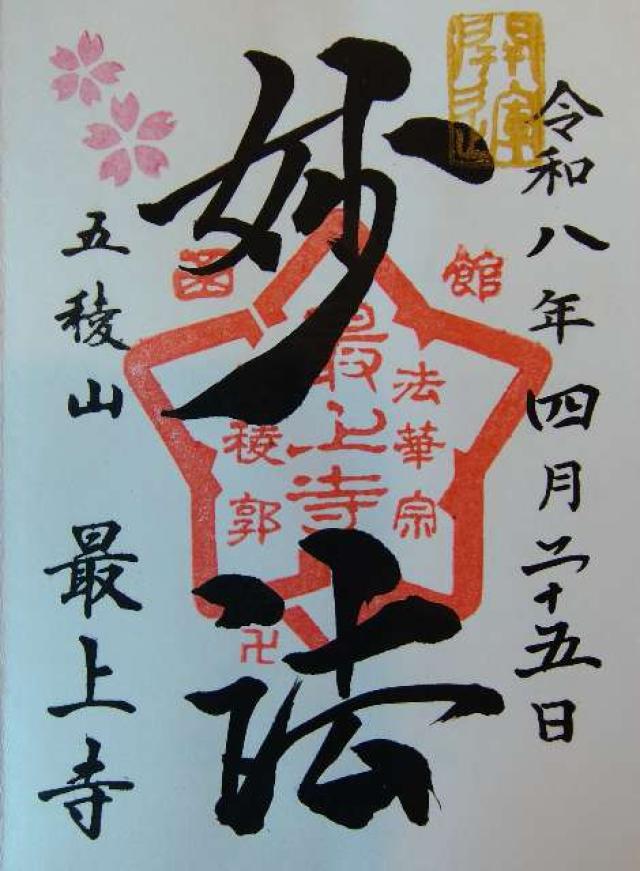 開運
令和八年四月二十五日
妙法
函館
法華宗
最上寺
稜郭
卍
五稜山 最上寺